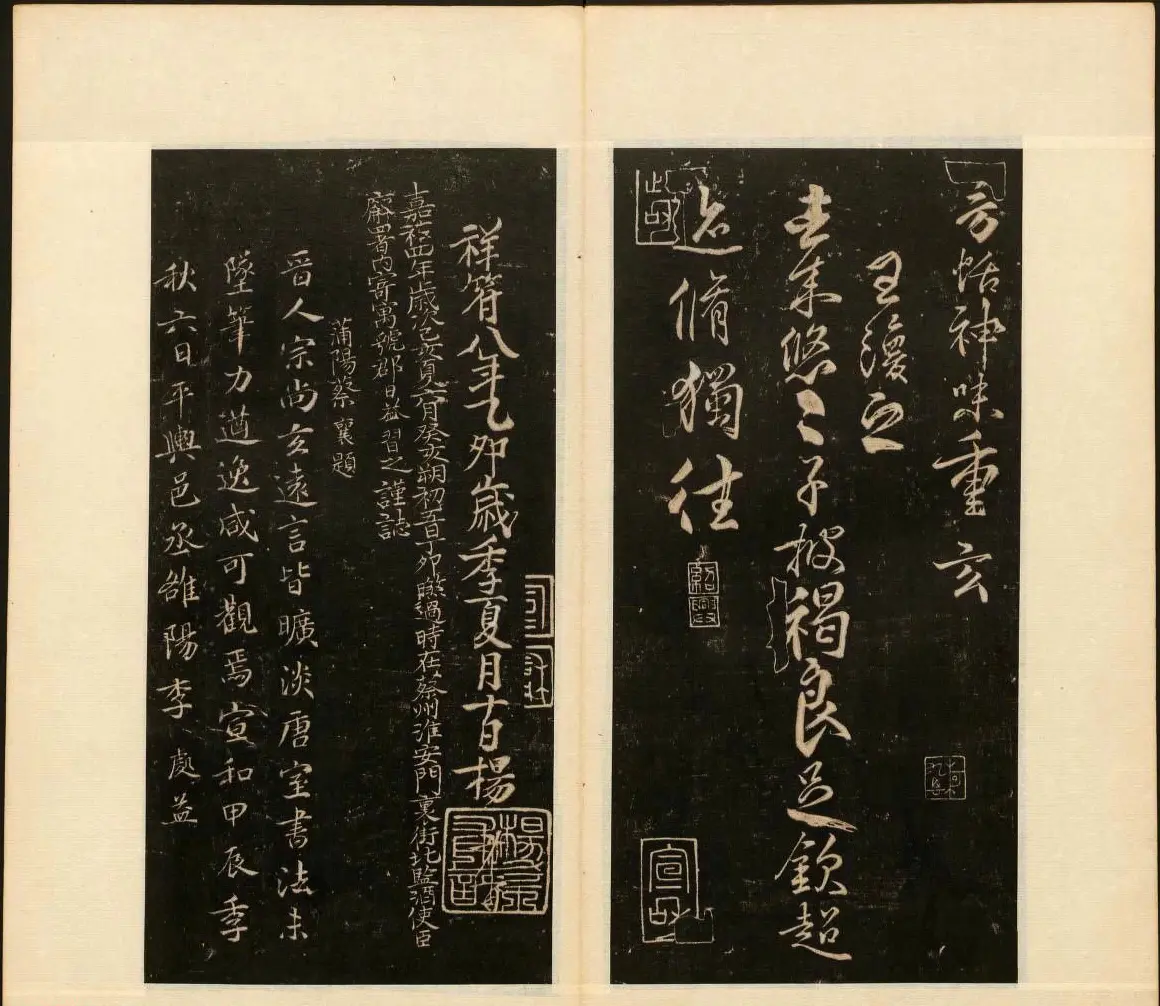 方恬神味重玄
王渙之
去來悠々子披褐良足欽超
迹脩獨往
紹興
祥符八年乙卯歲季夏月百楊
嘉祐四年歲次己亥夏六月癸亥朔初五日丁卯晙過時在蔡州淮安門裏街北監酒使臣
廨署內寄寓號郡日益習之謹誌
蒲陽蔡襄題
晉人宗尚玄遠言皆曠淡唐室書法未
墜筆力遒逸咸可觀焉宣和甲辰季
秋六日平輿邑丞雒陽李處益